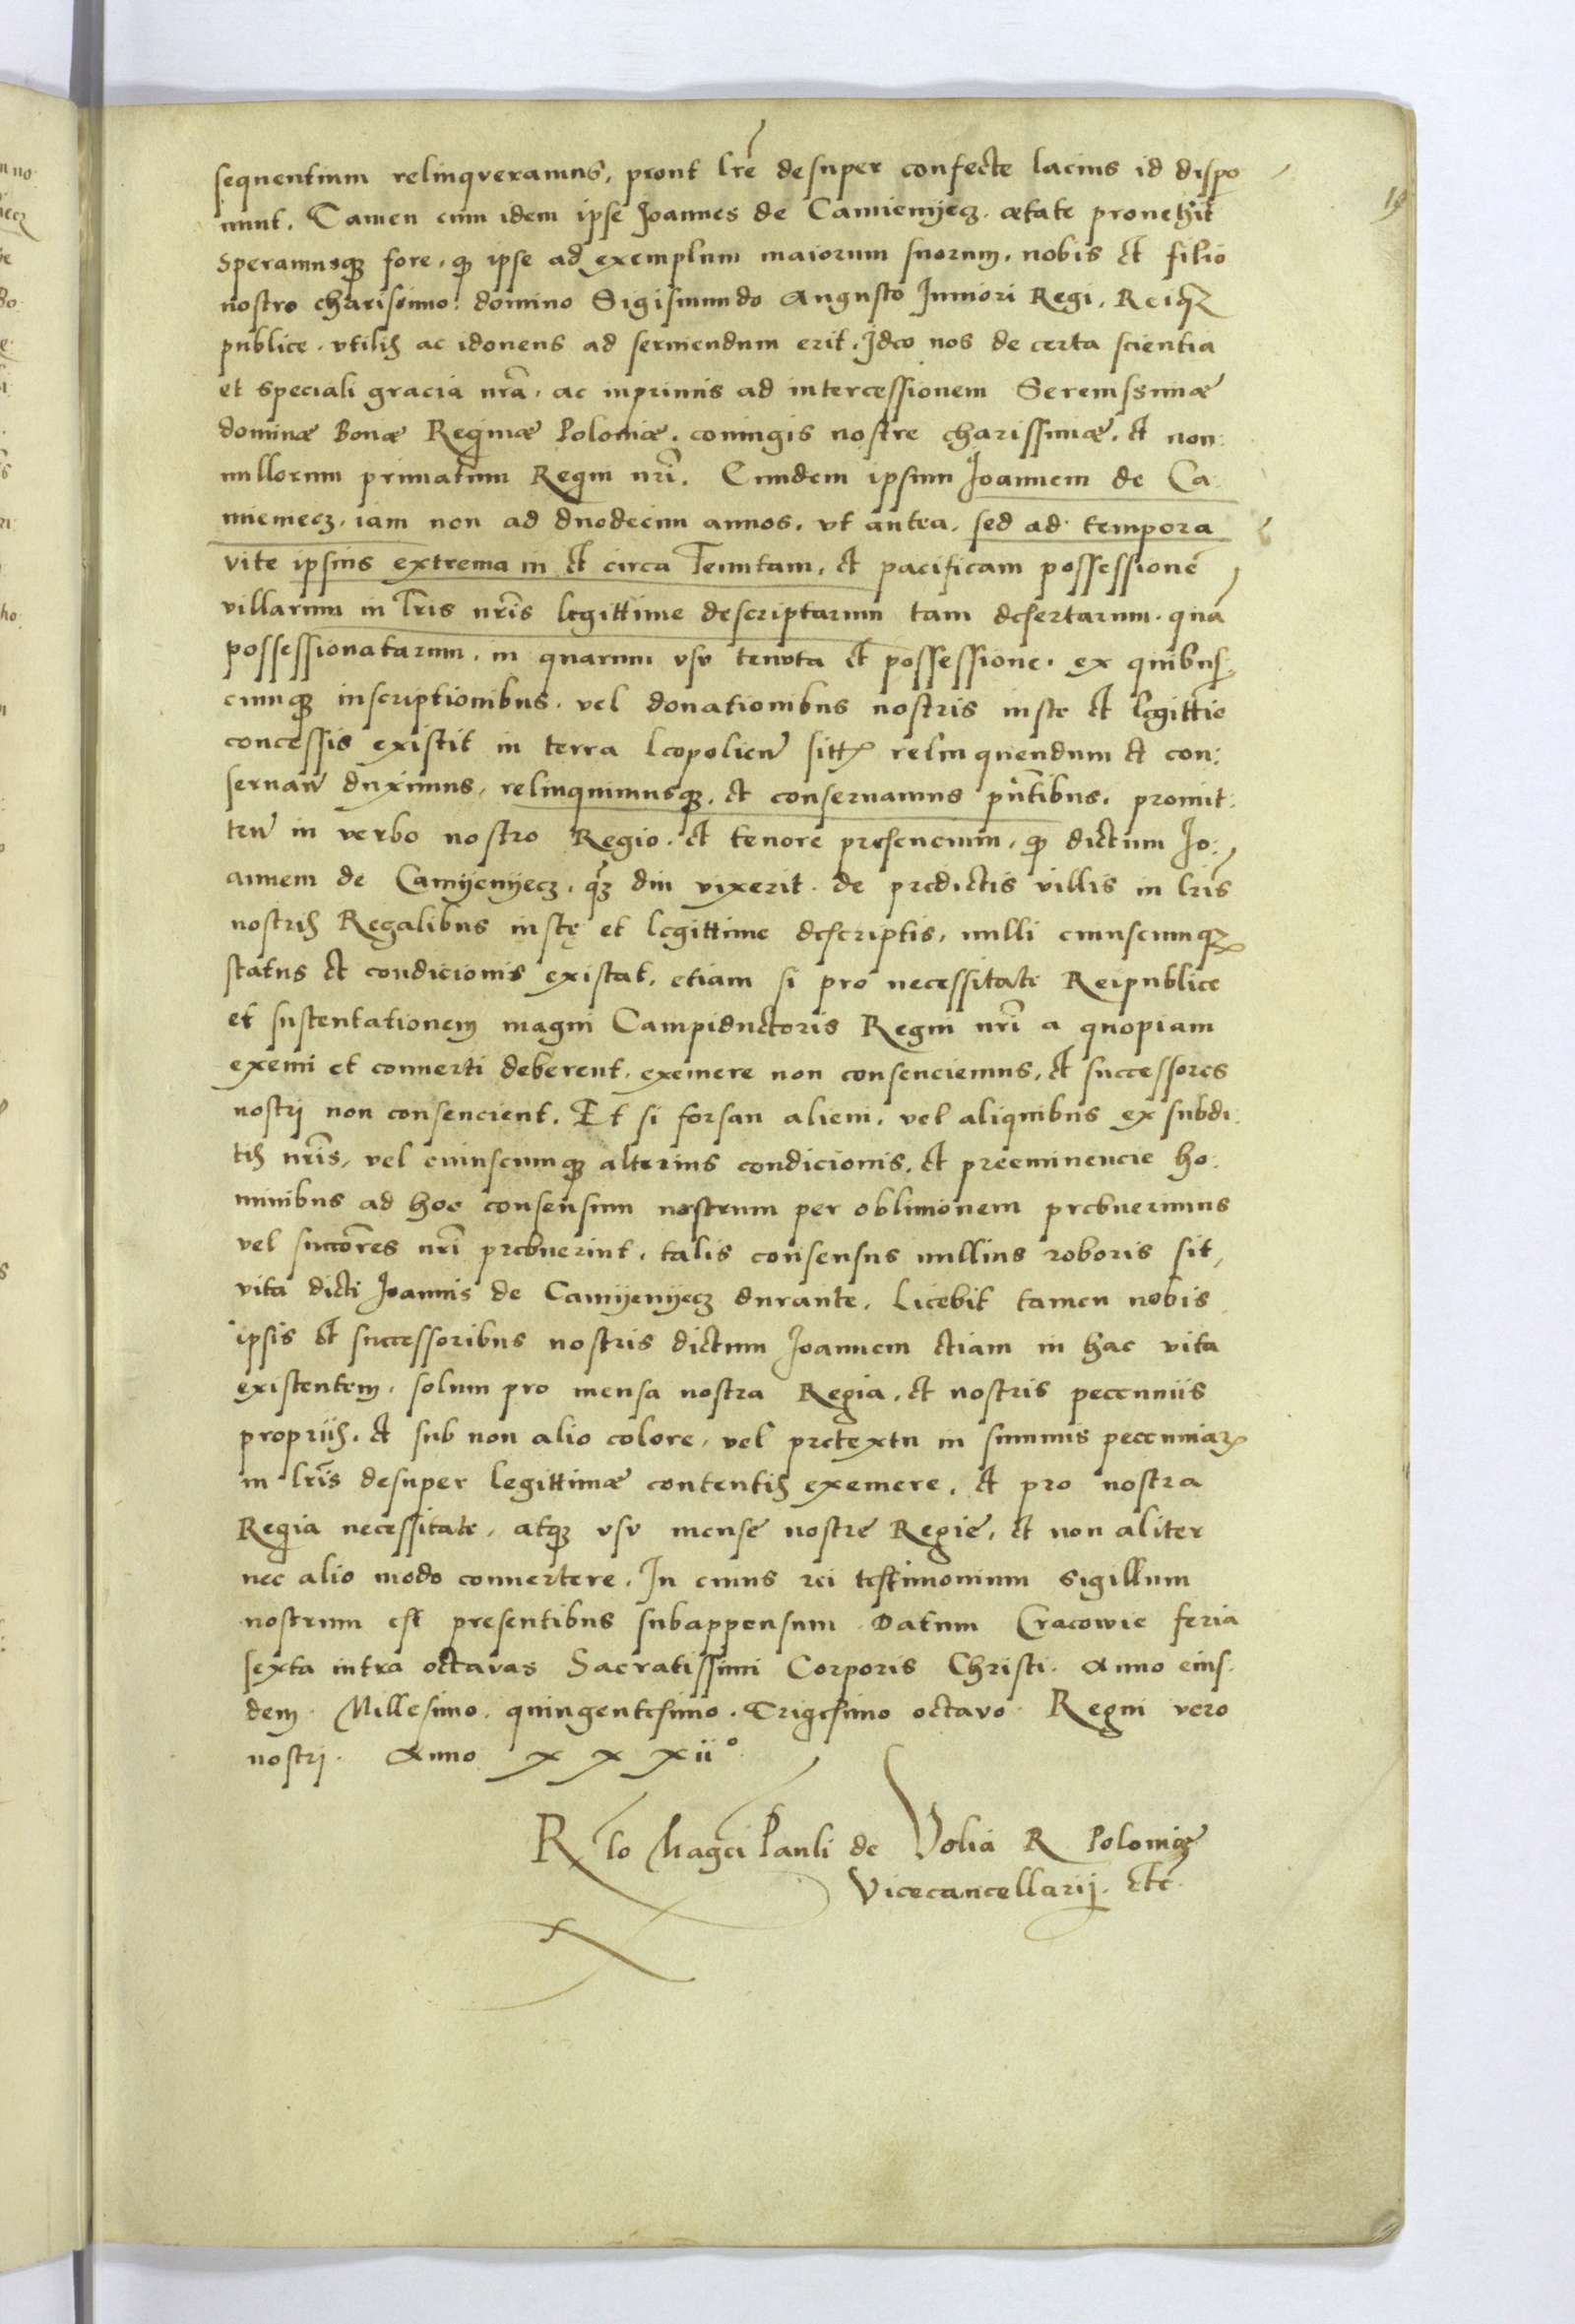 sequentium relinqveramus, prout lrẽ desuper confecte lacius id dispo
nunt. Tamen cum idem ipse Joannes de Camienyecz. ætate prouehit
Speramusqȝ fore, qȝ ipse ad exemplum maiorum suorum, nobis et filio
nostro charissimo: domino Sigismundo Augusto Juniori Regi, Reiqȝ
publice. vtilis ac idoneus ad seruiendum erit. Ideo nos de certa scientia
et speciali gracia nrã, ac inprimis ad intercessionem Serenissimæ
dominæ Bonæ Reginæ Poloniæ, coniugis nostre charissimæ, et non:
nullorum primatum Regni nrĩ. Eundem ipsum Joannem de Ca:
miemecz, iam non ad duodecim annos, vt antea, sed ad tempora
vite ipsius extrema in et circa Tenutam, et pacificam possessionẽ
villarum in lrĩs nrĩs legittime descriptarum tam desertarum. quã
possessionatarum, in quarum vsv tenvta et possessione. ex quibus:
cumqȝ inscriptionibus, vel donationibus nostris iuste et legittie
concessis existit in terra Leopolien̄ sitꝝ relinquendum et con:
seruan̄ duximus, relinquimusqȝ, et conseruamus pn̄tibus. promit:
ten̄ in verbo nostro Regio. et tenore presencium, qȝ dictum Jo:
annem de Camyenyecz, qȝ diu vixerit. de predictis villis in lrĩs
nostris Regalibus iustę et legittime descriptis, nulli cuiuscumqȝ
status et condicionis existat, etiam si pro necessitate Reipublice
et sustentationem magni Campiductoris Regni nrĩ a quopiam
exemi et conuerti deberent, exemere non consenciemus, et successores
nostri non consencient. Et si forsan alicui, vel aliquibus ex subdi:
tis nrĩs, vel cuiuscumqȝ alterius condicionis, et preeminencie ho:
minibus ad hoc consensum nostrum per obliuionem prebuerimus
vel succõres nrĩ prebuerint, talis consensus nullius roboris sit,
vita dicti Joannis de Camyenyecz durante. Licebit tamen nobis
ipsis et successoribus nostris dictum Joannem etiam in hac vita
existentem, solum pro mensa nostra Regia, et nostris peccuniis
propriis, et sub non alio colore, vel pretextu in summis peccuniaꝝ
in lrĩs desuper legittimæ contentis exemere, et pro nostra
Regia necessitate, atqȝ vsv mense nostre Regie, et non aliter
nec alio modo conuertere. In cuius rei testimonium sigillum
nostrum est presentibus subappensum. Datum Cracowie feria
sexta intra octavas Sacratissimi Corporis Christi. Anno eius:
dem. Millesimo. quingentesimo. Trigesimo octavo. Regni vero
nostri. Anno x x xii°
Rlo Magci Pauli de Volia R Poloniæ
Vicecancellarij. etc.